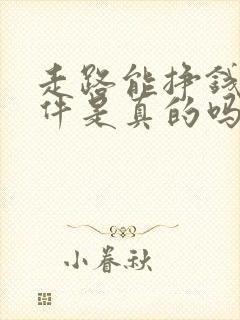 走路能挣钱
件是真的吗
小春秋